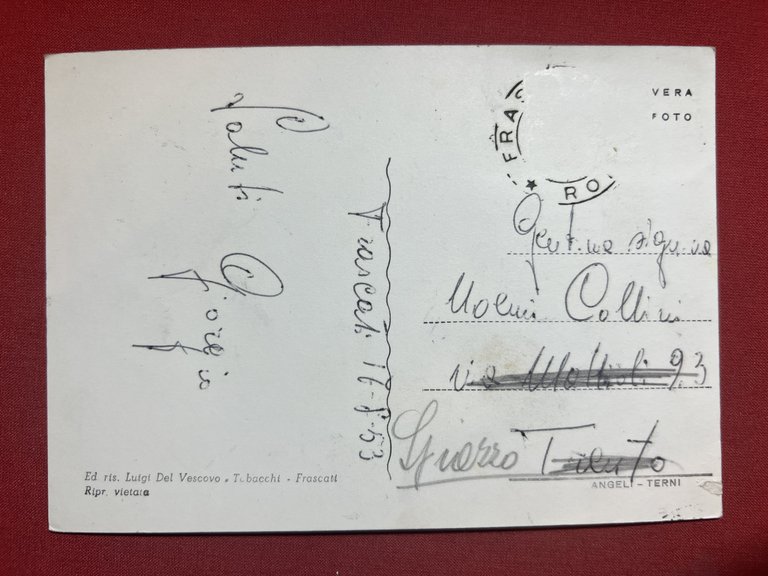 Saluti
Giorgio
Frascati 16-8-53
VERA
FOTO
FRA
RO
Gent.ma sig.na
Collini
via 93
Spiazzo Trento
Ed ris. Luigi Del Vescovo - Tabacchi - Frascati
Ripr. vietata
ANGELI - TERNI